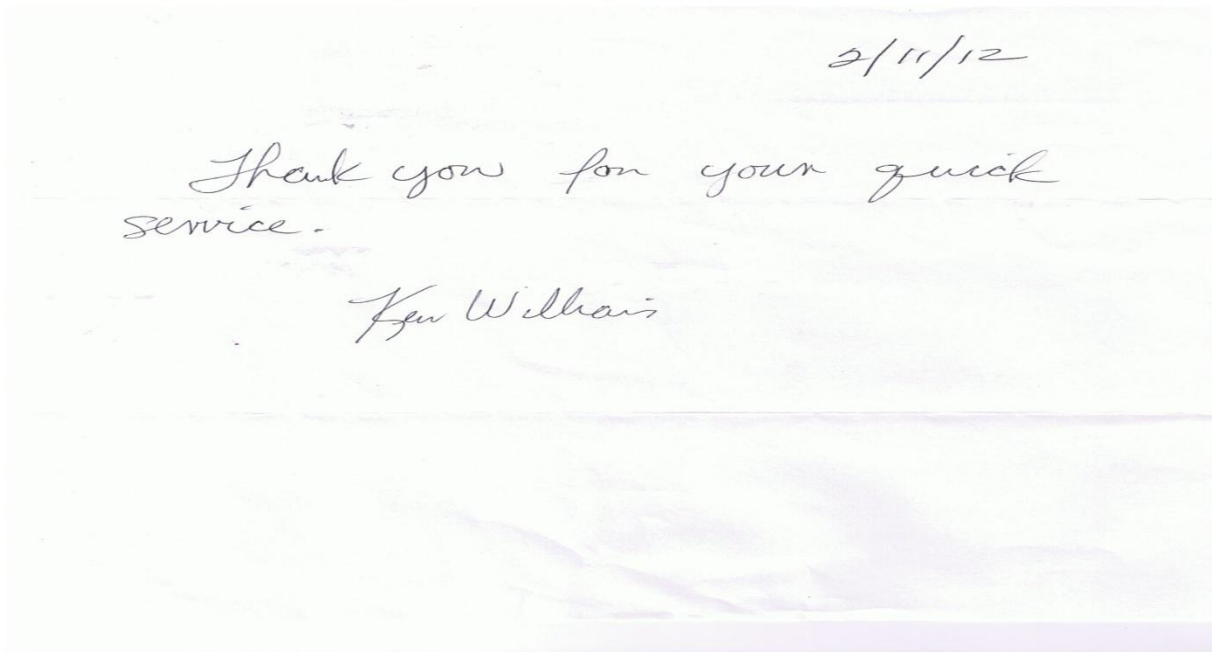 2/11/12
Thank you for your quick
service.
Ken Williams